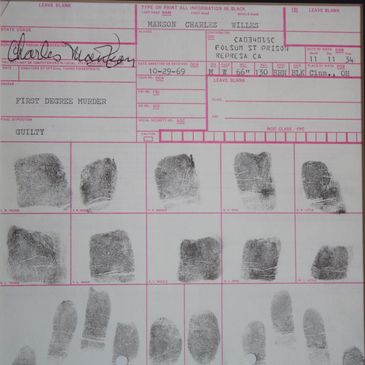 LEAVE BLANK
TYPE OR PRINT ALL INFORMATION IN BLACK
LEAVE BLANK
LAST NAME NAM
FIRST NAME
MIDDLE NAME
MANSON CHARLES WILLES
STATE USAGE
ALIASES
CONTRIBUTOR
ORI
CA034015C
FOLSOM ST PRISON
REPRESA CA
Charles Manson
SIGNATURE OF PERSON FINGERPRINTED
DATE OF BIRTH DOB
11 11 34
DATE ARRESTED OR RECEIVED DOA
10-29-69
SEX
RACE
HGT.
WGT.
EYES
HAIR
PLACE OF BIRTH POB
M W 66" 130 BRN BLK Cinn., OH
DATE
SIGNATURE OF OFFICIAL TAKING FINGERPRINTS
CHARGE
FIRST DEGREE MURDER
LEAVE BLANK
FINAL DISPOSITION
GUILTY
SOCIAL SECURITY NO. SOC
CAUTION
NCIC CLASS. FPC